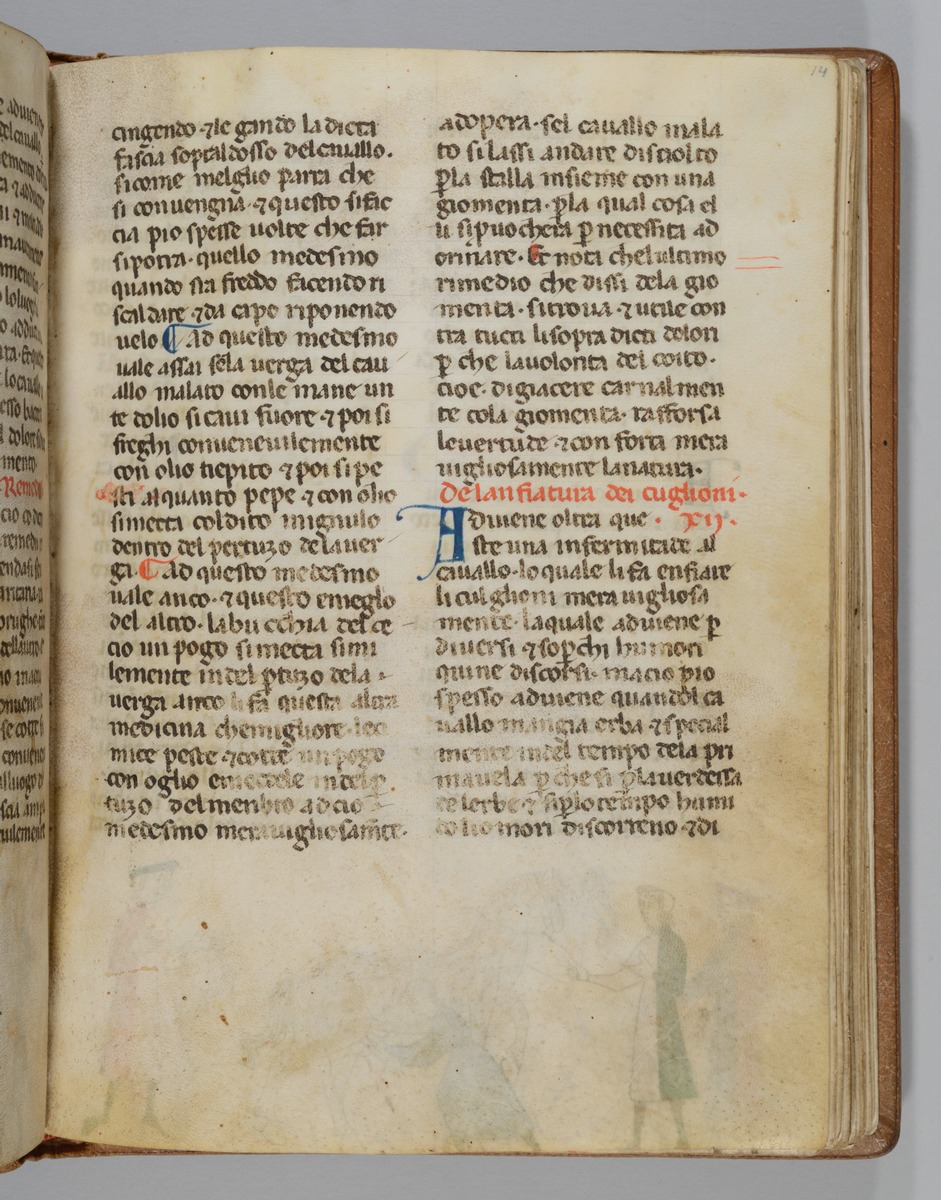 14
cingendo ⁊le gando la dicta
fascia sopral dosso del cauallo.
si come melglio parra che
si conuengna ⁊ questo si fic
cia pio spesse uolte che far
si potra. quello medesimo
quando sta freddo facendo ri
scaldare ⁊ da capo riponendo
uelo Ad questo medesmo
uale assai se la verga del cau
allo malato con le mane un
te dolio si caui fuore ⁊ poi si
freghi conueneuilemente
con olio tiepito ⁊ poi si pe
sti alquanto pepe ⁊ con olio
si metta col dito mignulo
dentro del pertuzo dela uer
ga. Ad questo medesimo
uale anco. ⁊ questo emeglo
del altro. la bu cchia del ce
cio un pogo si metta simi
lemente in del ptuzo dela
verga anco li fa questa altra
medicina che migliore
mice peste ⁊ cotte un pogo
con oglio e mectele in del p
tuzo del menbro ad cio
medesmo merauigliosamēte.
adopera. sel cauallo mala
to si lassi andare disciolto
p la stalla insieme con una
giomenta. p la qual cosa el
li si puochera p necessita ad
orinare. Et nota chel ultimo
rimedio che dissi dela gio
menta. si troua. ⁊ utile con
tra tucti li sopra dicti dolori
p che la uolonta del coito.
cioe. di giacere carnal men
te cola giomenta. rafforsa
le uertude ⁊ con forta mera
uigliosamente la natura.
De la nfiatura dei cuglioni.
Aduiene oltra que . XIJ.
ste una infermitade al
cauallo. lo quale li fa enfiare
li culglioni merauigliosa
mente. la quale aduiene p
diuersi ⁊ sopchi humori
quine discorsi. ma cio pio
spesso aduiene quandol ca
uallo mangia erba ⁊ special
mente in del tempo dela pri
mauela p che si p la uerdessa
de lerbe ⁊ si p lo tempo humi
do li omori discorreno ⁊ di